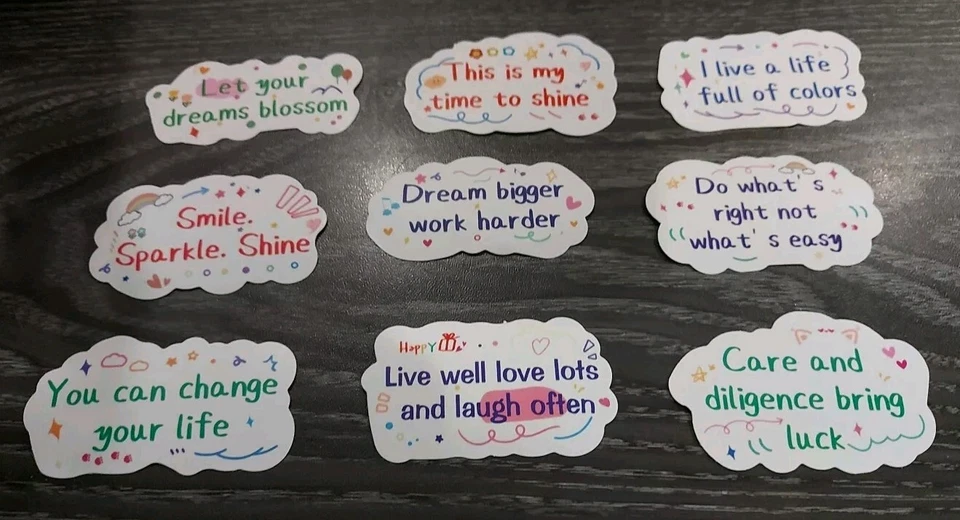 Let your
dreams blossom
This is my
time to shine
I live a life
full of colors
Smile.
Sparkle. Shine
Dream bigger
work harder
Do what's
right not
what's easy
You can change
your life
HAPPY
Live well love lots
and laugh often
Care and
diligence bring
luck